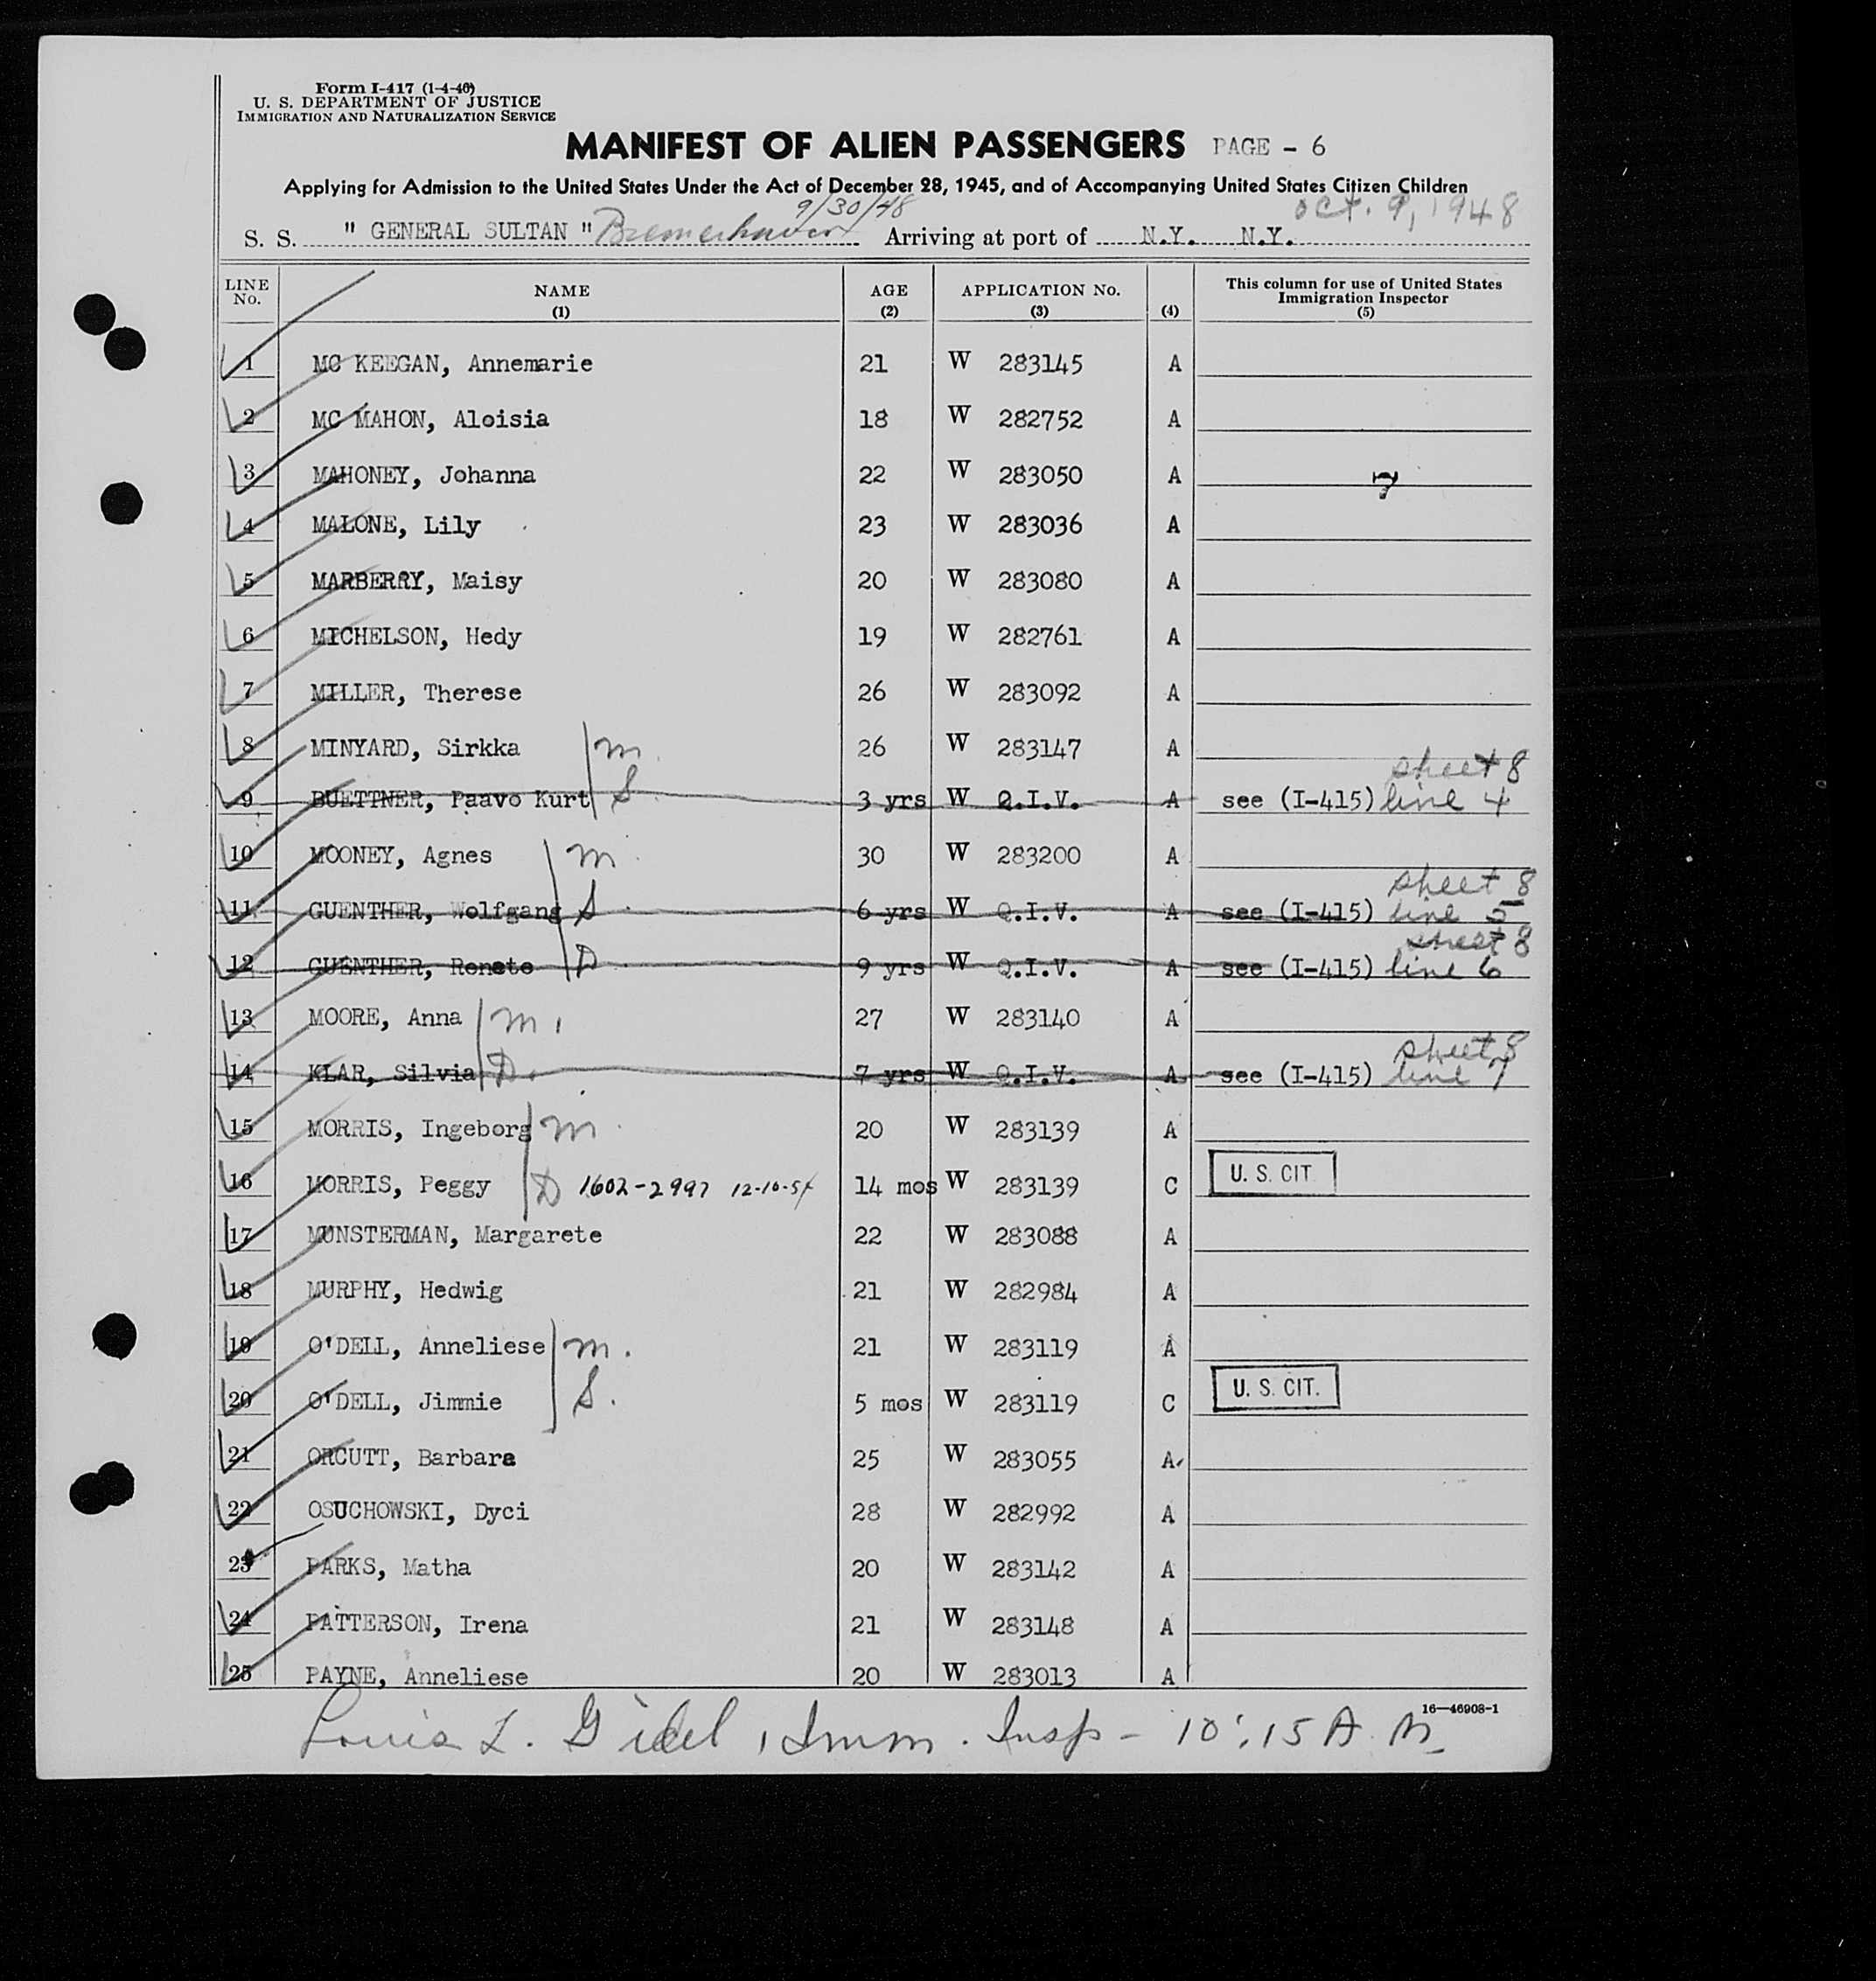 Form I-417 (1-4-46)
U. S. DEPARTMENT OF JUSTICE
IMMIGRATION AND NATURALIZATION SERVICE
MANIFEST OF ALIEN PASSENGERS PAGE - 6
Applying for Admission to the United States Under the Act of December 28, 1945, and of Accompanying United States Citizen Children
9/30/48 Oct. 9, 1948
S. S. " GENERAL SULTAN " Bremerhaven Arriving at port of N.Y. N.Y.
LINE No. NAME (1) AGE (2) APPLICATION No. (3) (4) This column for use of United States Immigration Inspector (5)
1 MC KEEGAN, Annemarie 21 W 283145 A
2 MC MAHON, Aloisia 18 W 282752 A
3 MAHONEY, Johanna 22 W 283050 A 7
4 MALONE, Lily 23 W 283036 A
5 MARBERRY, Maisy 20 W 283080 A
6 MICHELSON, Hedy 19 W 282761 A
7 MILLER, Therese 26 W 283092 A
8 MINYARD, Sirkka m. 26 W 283147 A
9 BUETTNER, Paavo Kurt S. 3 yrs W Q.I.V. A see (I-415) sheet 8 line 4
10 MOONEY, Agnes m. 30 W 283200 A
11 GUENTHER, Wolfgang S. 6 yrs W Q.I.V. A see (I-415) sheet 8 line 5
12 GUENTHER, Renate D. 9 yrs W Q.I.V. A see (I-415) sheet 8 line 6
13 MOORE, Anna m. 27 W 283140 A
14 KLAR, Silvia D. 7 yrs W Q.I.V. A see (I-415) sheet 8 line 7
15 MORRIS, Ingeborg m. 20 W 283139 A
16 MORRIS, Peggy D 1602-2997 12-10-54 14 mos W 283139 C U. S. CIT.
17 MUNSTERMAN, Margarete 22 W 283088 A
18 MURPHY, Hedwig 21 W 282984 A
19 O'DELL, Anneliese m. 21 W 283119 A
20 O'DELL, Jimmie S. 5 mos W 283119 C U. S. CIT.
21 ORCUTT, Barbara 25 W 283055 A
22 OSUCHOWSKI, Dyci 28 W 282992 A
23 PARKS, Matha 20 W 283142 A
24 PATTERSON, Irena 21 W 283148 A
25 PAYNE, Anneliese 20 W 283013 A
16—46908-1
Louis L. Gidel, Imm. Insp - 10:15 A.M.